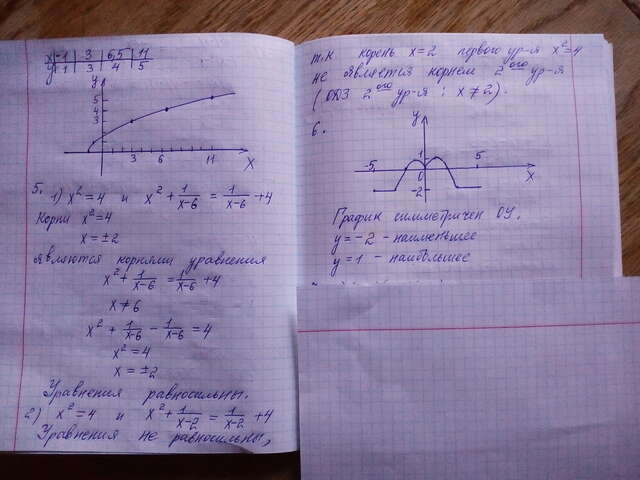 x | -1 | 3 | 6,5 | 11
y | 1 | 3 | 4 | 5
y
5
4
3
3 6 11 x
5. 1) x² = 4 и x² + 1/(x-6) = 1/(x-6) + 4
Корни x² = 4
x = ±2
являются корнями уравнения
x² + 1/(x-6) = 1/(x-6) + 4
x ≠ 6
x² + 1/(x-6) - 1/(x-6) = 4
x² = 4
x = ±2
Уравнения равносильны.
2) x² = 4 и x² + 1/(x-2) = 1/(x-2) + 4
Уравнения не равносильны,
т.к корень x = 2 первого ур-я x² = 4
не является корнем 2ого ур-я
(ОДЗ 2ого ур-я : x ≠ 2).
6.
y
-5 1 5
-2 x
График симметричен ОУ.
y = -2 - наименьшее
y = 1 - наибольшее